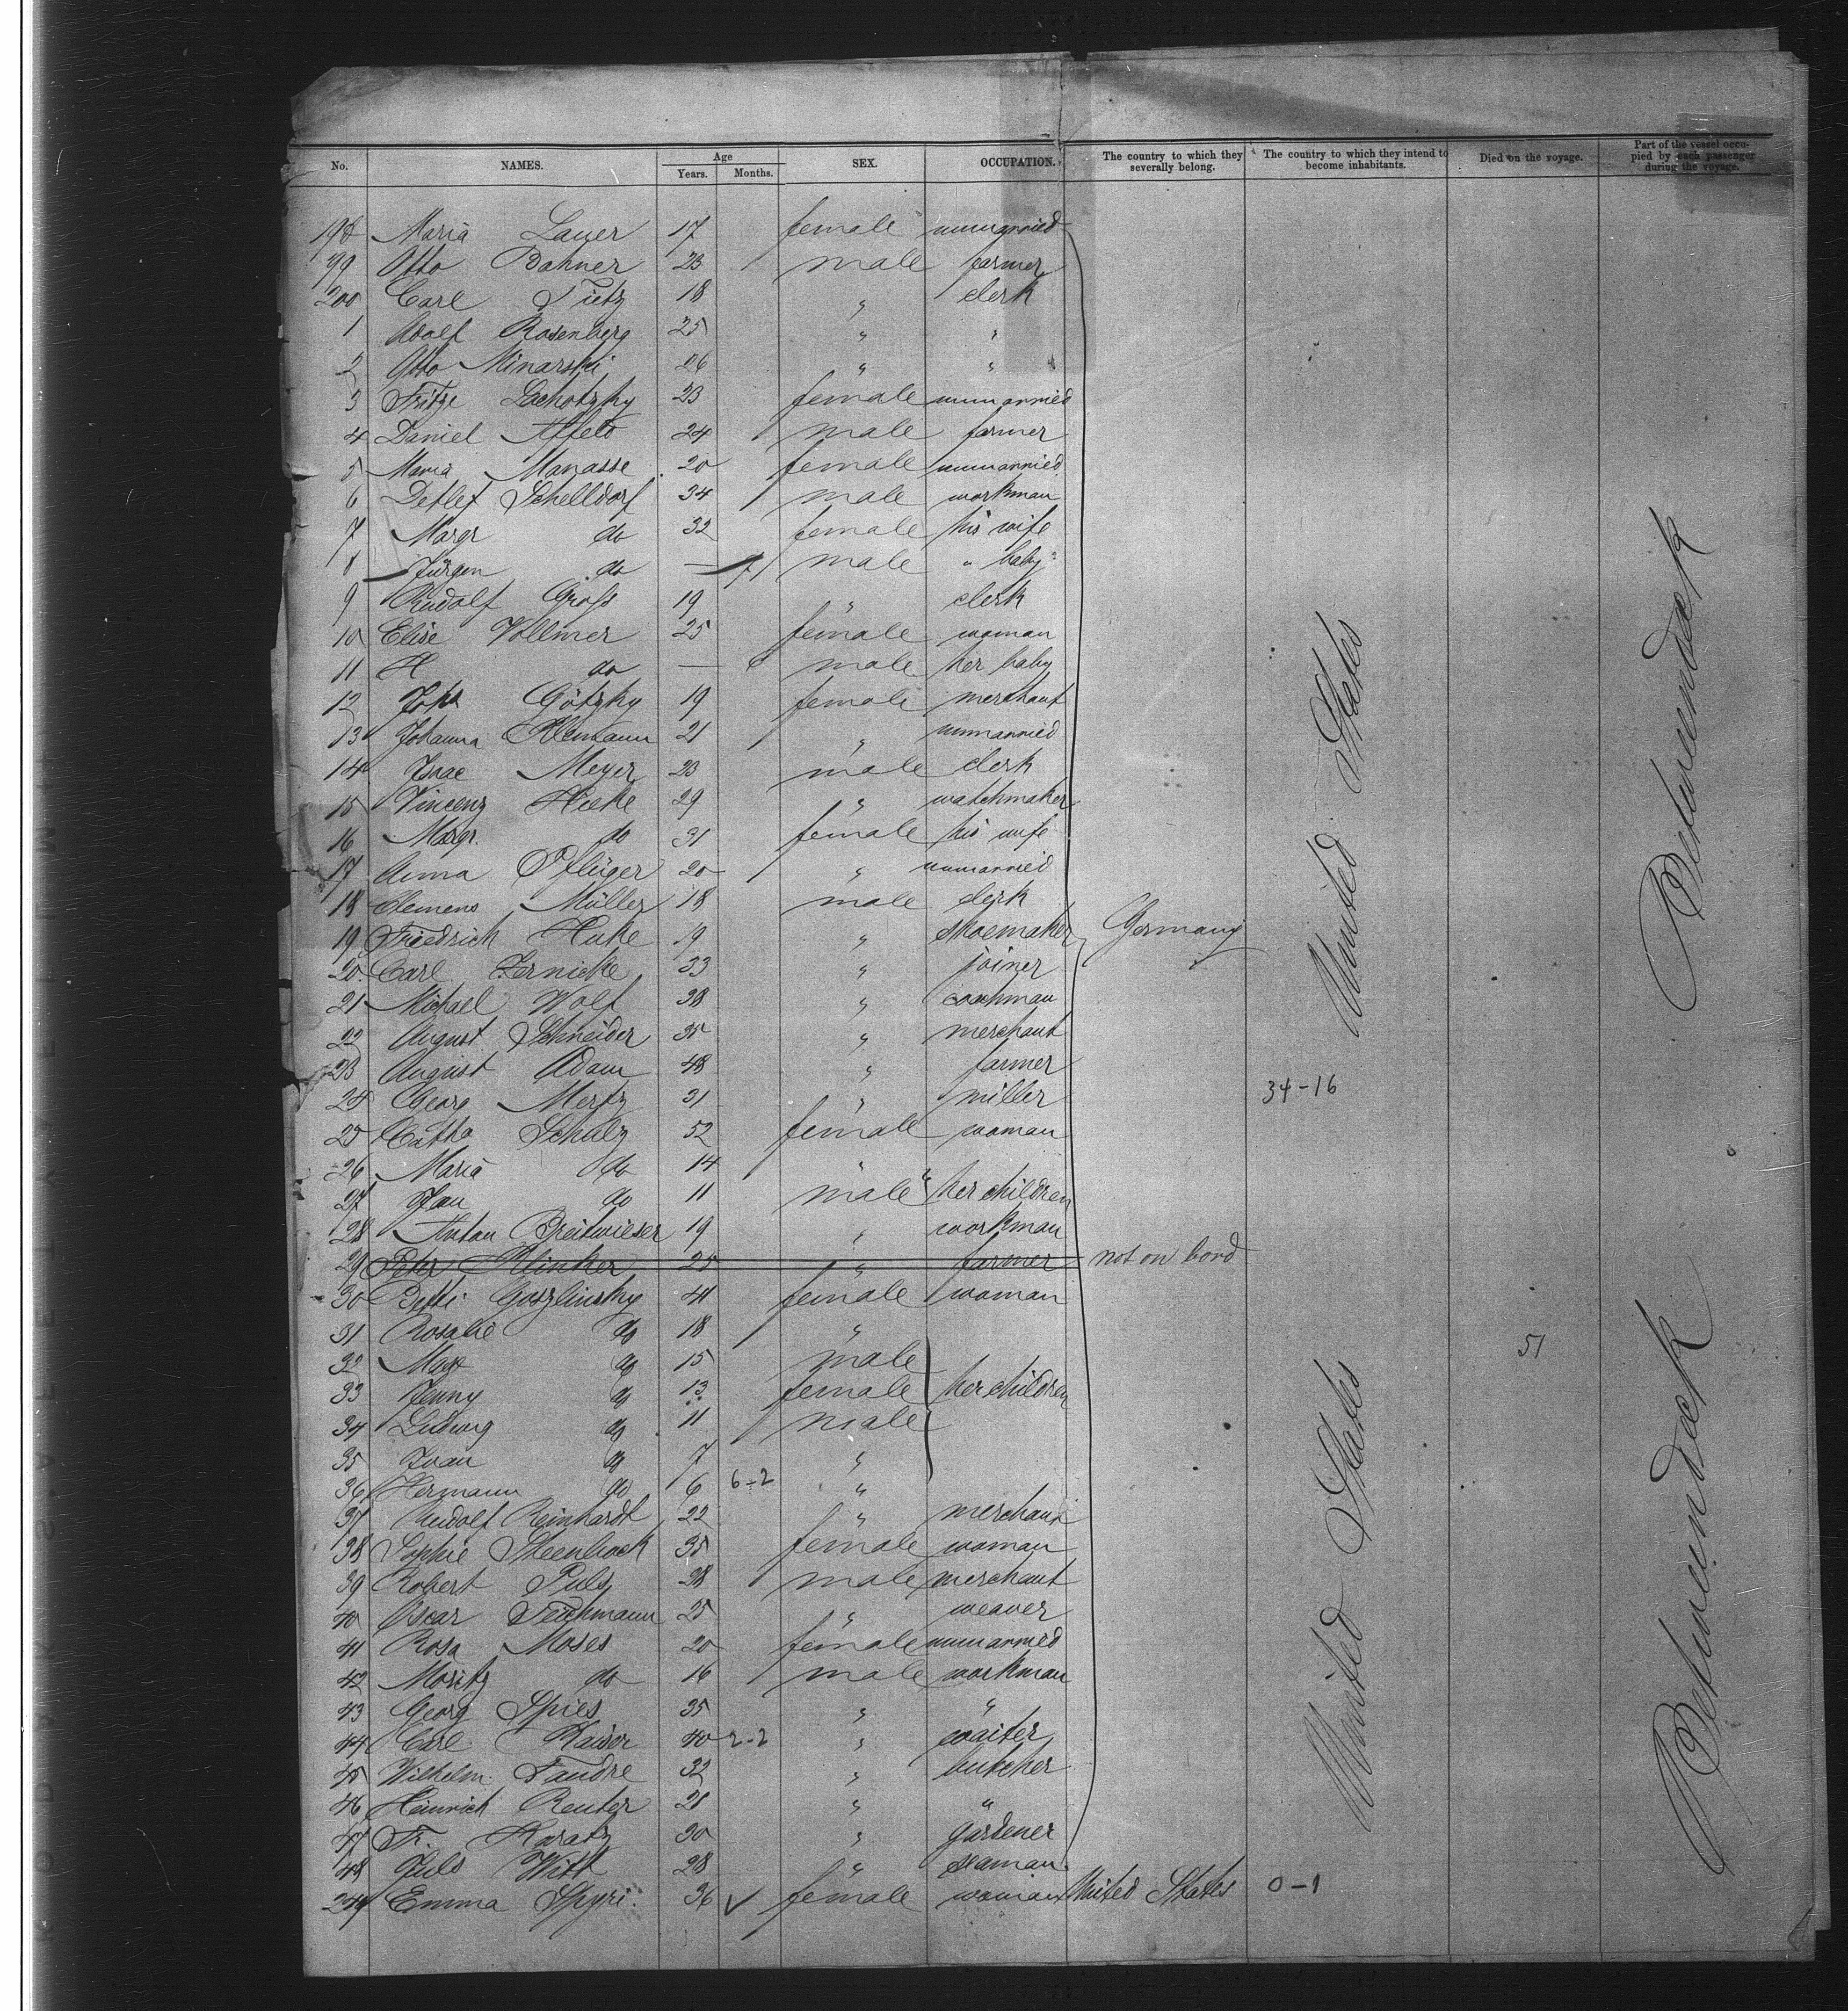 No. NAMES. Age Years. Months. SEX. OCCUPATION. The country to which they severally belong. The country to which they intend to become inhabitants. Died on the voyage. Part of the vessel occupied by each passenger during the voyage.
198 Maria Lauer 17 female unmarried
99 Otto Bahner 23 male farmer
200 Carl Tietz 18 " clerk
1 Adolf Rosenberg 25 " "
2 Otto Minarski 26 " "
3 Fritze Lachotzky 23 female unmarried
4 Daniel Affeld 24 male farmer
5 Maria Manasse 20 female unmarried
6 Detlef Schelldorf 34 male workman
7 Margr do 32 female his wife
8 Jürgen do — male " baby
9 Rudolf Groß 19 " clerk
10 Elise Vollmer 25 female woman
11 H do — male her baby
12 Götzky 19 female merchant
13 Johanna Klemann 21 " unmarried
14 Isaac Meyer 23 male clerk
15 Vincenz Hieke 29 " watchmaker
16 Margr. do 31 female his wife
17 Anna Pflüger 20 " unmarried
18 Clemens Müller 18 male clerk
19 Friedrich Huke 19 " shoemaker Germany United States Betweendeck
20 Carl Zernicke 33 " joiner
21 Michael Wolf 38 " coachman
22 August Schneider 35 " merchant
23 August Adam 48 " farmer
24 Georg Mertz 31 " miller 34-16
25 Catha Schulz 52 female woman
26 Maria do 14 "
27 Jan do 11 male her children
28 Anton Breitwieser 19 " workman
29 Peter Klinker 25 " farmer not on bord
30 Betti Goszlinsky 41 female woman
31 Rosalie do 18 "
32 Max do 15 male 51
33 Jenny do 13 female her children
34 Ludwig do 11 male
35 Ivan do 7 "
36 Hermann do 6 6-2 "
37 Rudolf Reinhardt 22 " merchant
38 Sophie Steenbock 35 female woman
39 Robert Puls 28 male merchant
40 Oscar Teichmann 25 " weaver
41 Rosa Moses 20 female unmarried
42 Moritz do 16 male workman United States Betweendeck
43 Georg Spies 35 " "
44 Carl Kaiser 40 2-2 " waiter
45 Wilhelm Tandre 32 " butcher
46 Heinrich Reuter 21 " "
47 Fr. Koratz 30 " gardener
48 Juls Witt 28 " seaman
249 Emma Spyri 36 female woman United States 0-1